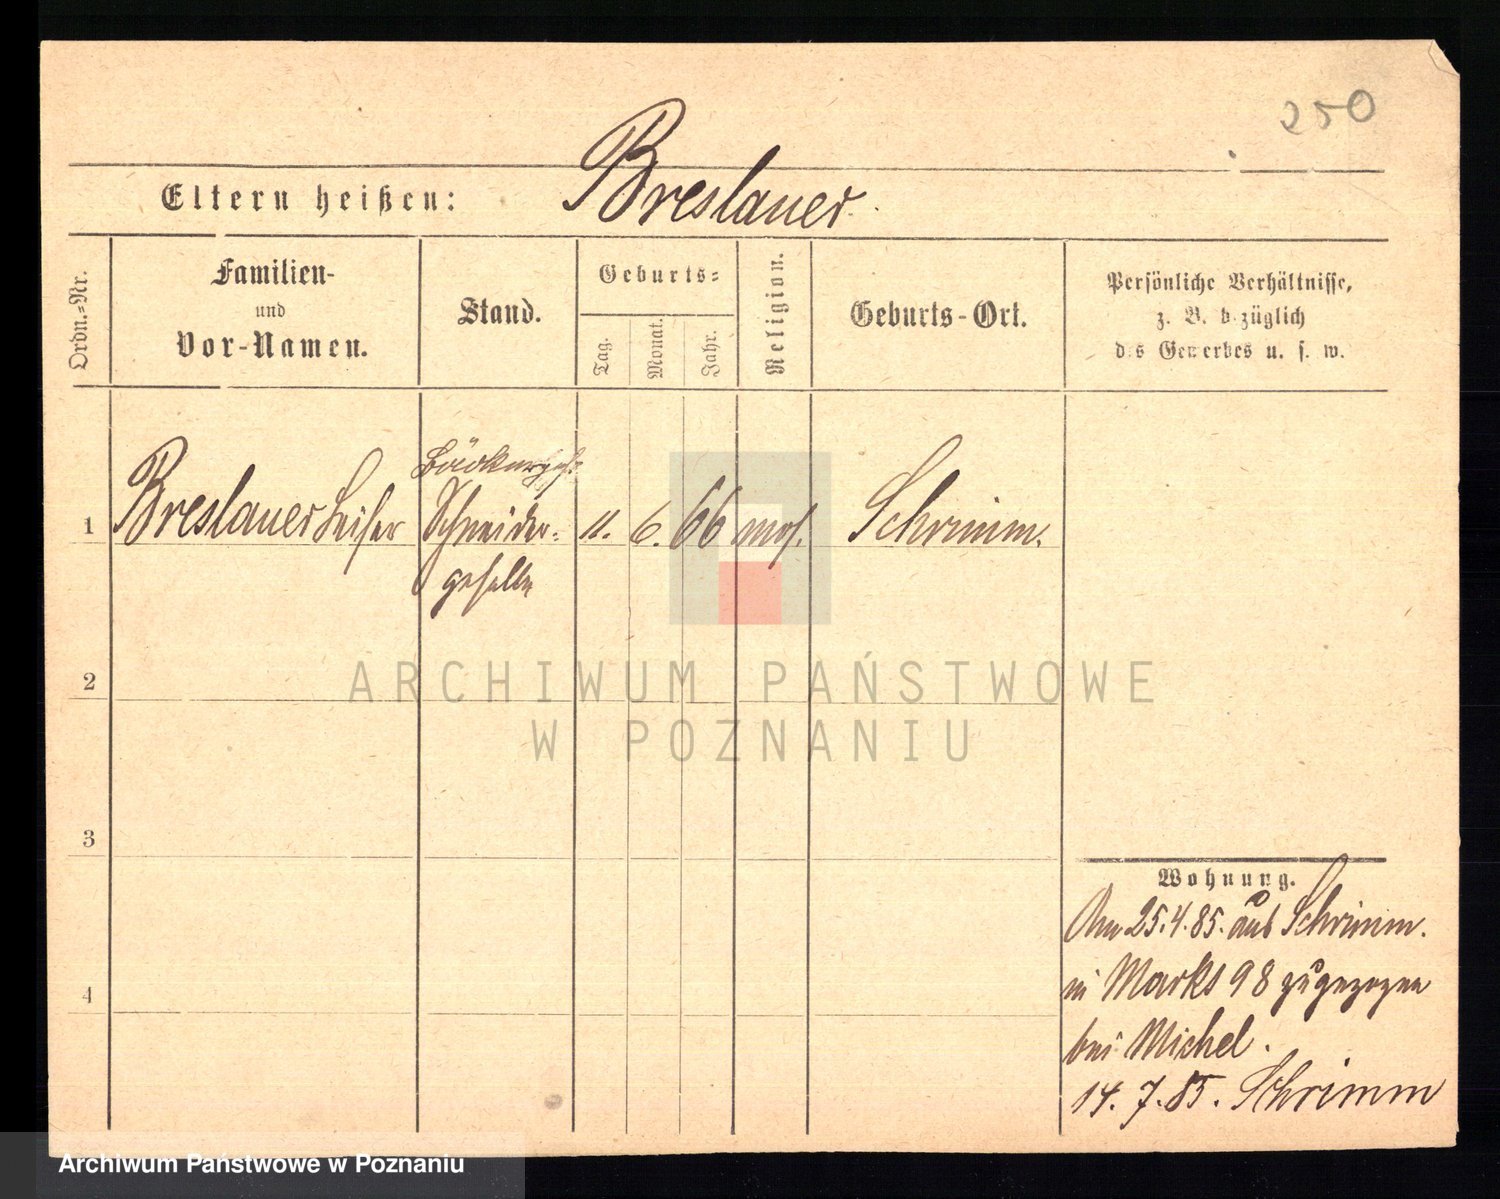 250
Eltern heißen: Breslauer
Ordn.-Nr.
Familien-
und
Vor-Namen.
Stand.
Geburts-
Tag.
Monat.
Jahr.
Religion.
Geburts-Ort.
Persönliche Verhältnisse,
z. B. bezüglich
des Gewerbes u. s. w.
Bäckerges.
1 Breslauer Leiser Schneider- 11. 6. 66 mos. Schrimm.
geselle
2
3
4
Wohnung.
Am 25.4.85. aus Schrimm.
in Markt 98 zugezogen
bei Michel.
14. 7. 85. Schrimm
ARCHIWUM PAŃSTWOWE
W POZNANIU
Archiwum Państwowe w Poznaniu